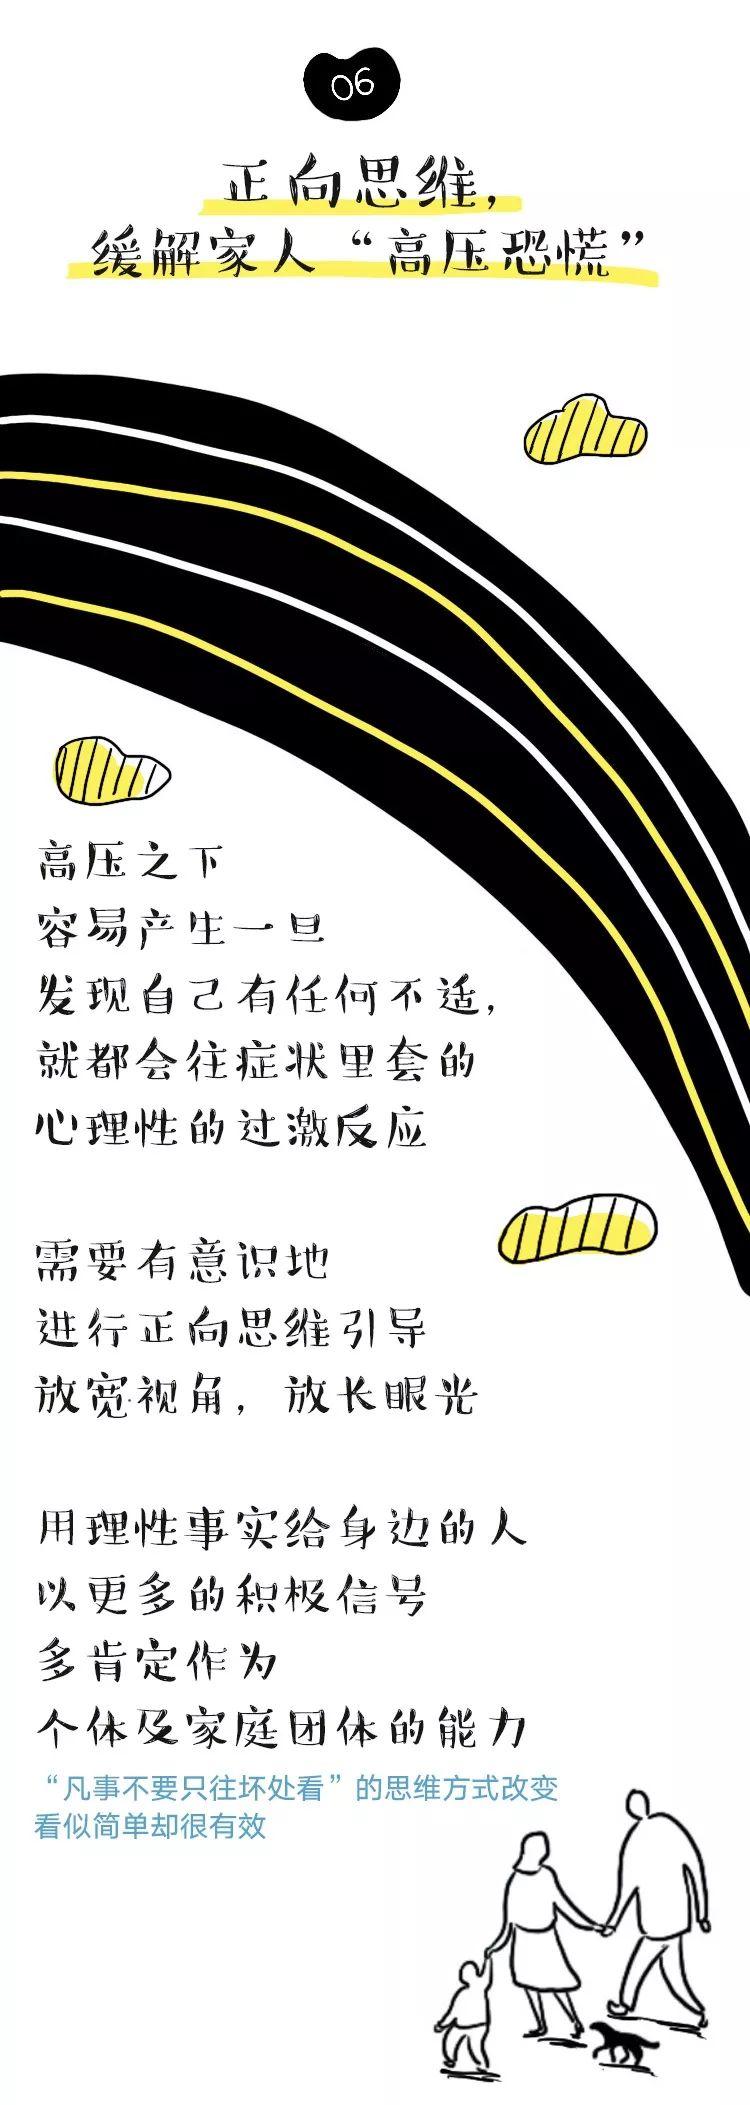 06
正向思维，
缓解家人“高压恐慌”
高压之下
容易产生一旦
发现自己有任何不适，
就都会往症状里套的
心理性的过激反应
需要有意识地
进行正向思维引导
放宽视角，放长眼光
用理性事实给身边的人
以更多的积极信号
多肯定作为
个体及家庭团体的能力
“凡事不要只往坏处看”的思维方式改变
看似简单却很有效